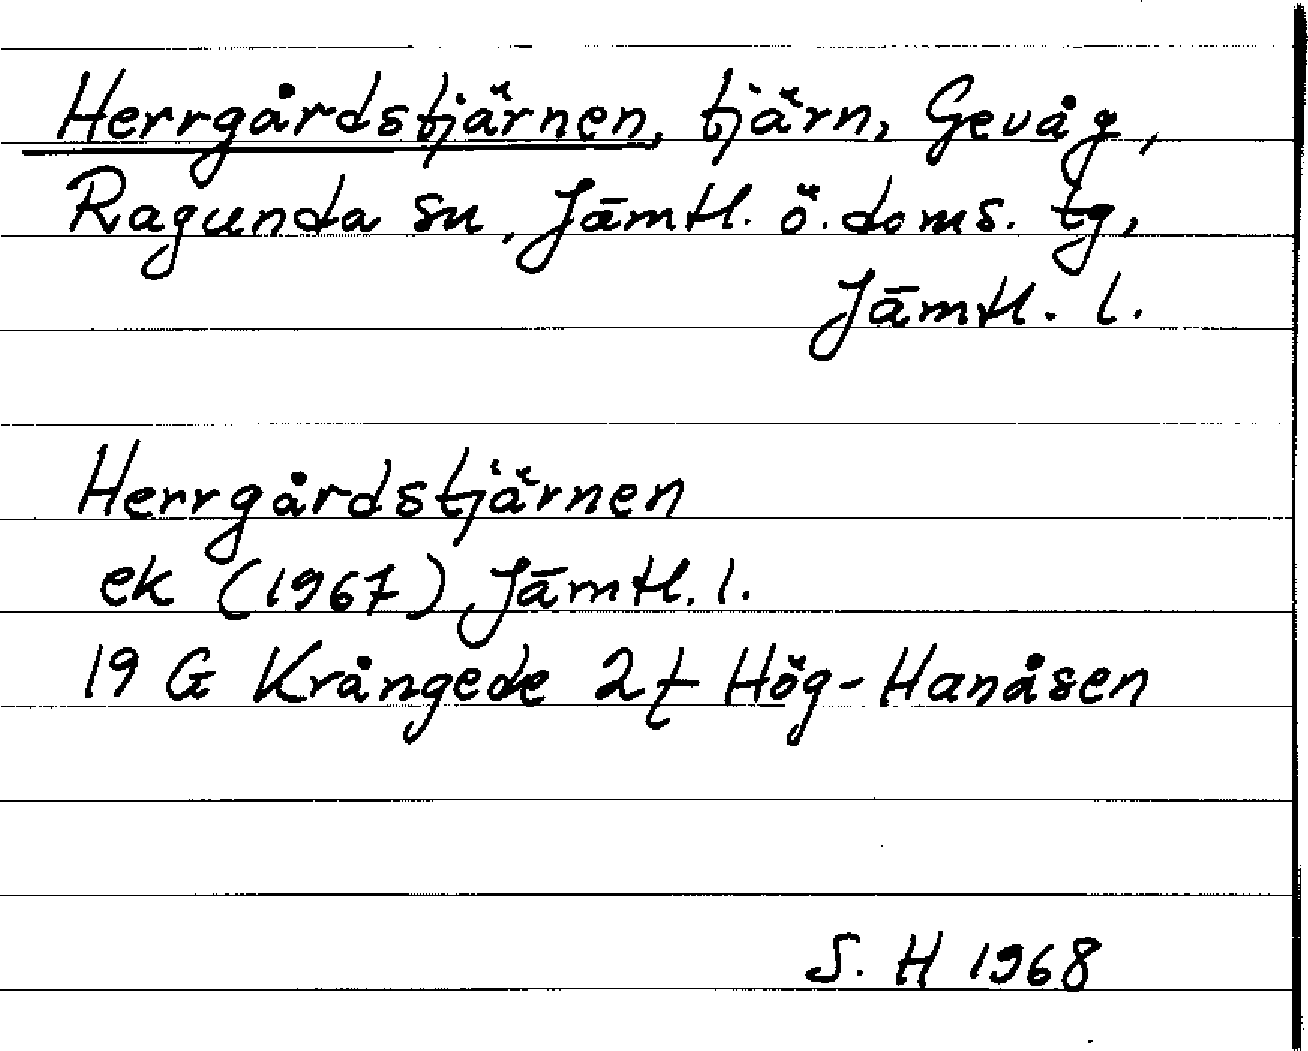 Herrgårdstjärnen, tjärn, Gevåg,
Ragunda sn, Jämtl. ö. doms. tg,
Jämtl. l.
Herrgårdstjärnen
ek (1967) Jämtl. l.
19 G Krångede 2f Hög-Hanåsen
S. H 1968